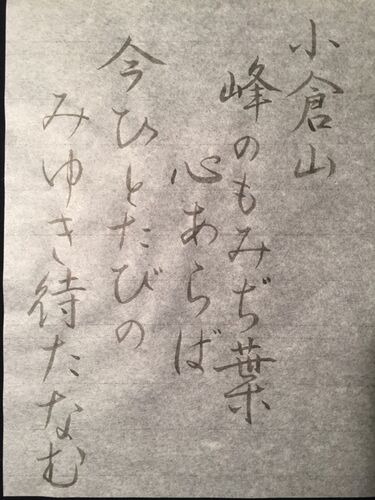 小倉山
峰のもみぢ葉
心あらば
今ひとたびの
みゆき待たなむ